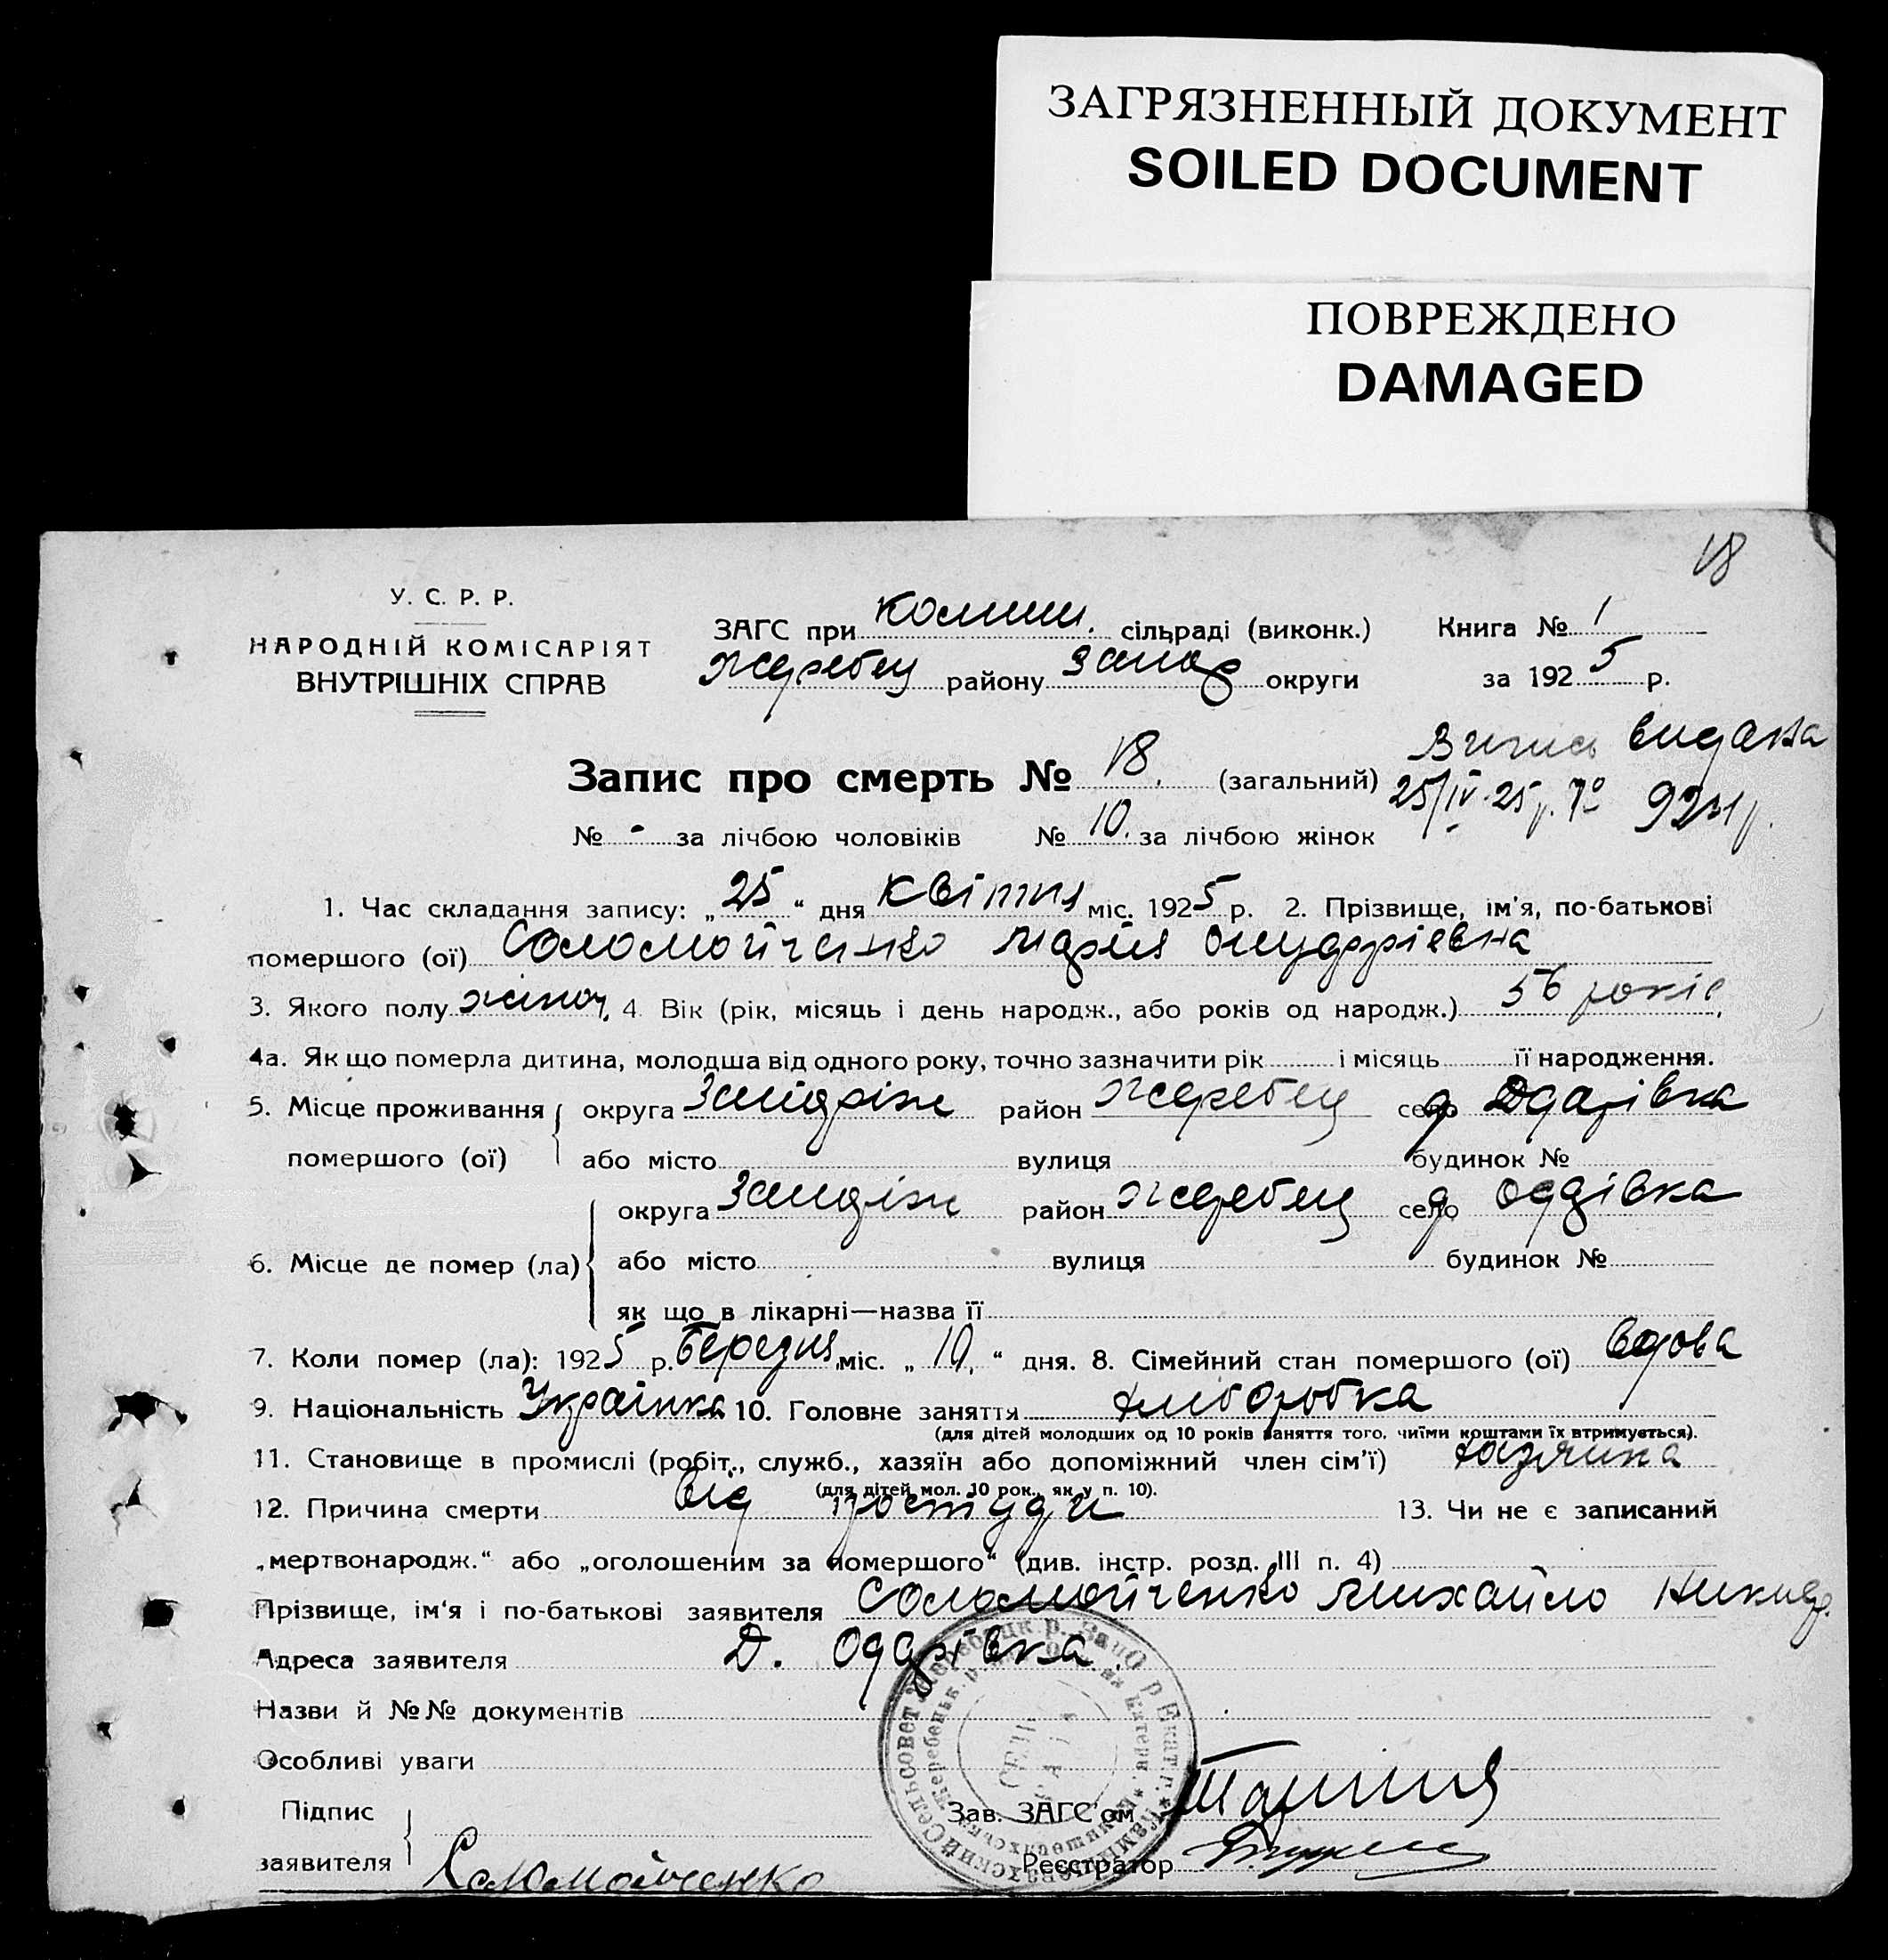 ЗАГРЯЗНЕННЫЙ ДОКУМЕНТ
SOILED DOCUMENT
ПОВРЕЖДЕНО
DAMAGED
18
У. С. Р. Р.
НАРОДНІЙ КОМІСАРІЯТ
ВНУТРІШНІХ СПРАВ
ЗАГС при Комиш. сільраді (виконк.) Книга № 1
Жеребец району Запор округи за 1925 р.
Запис про смерть № 18. (загальний)
Випись видана
25/IV-25р.
№ - за лічбою чоловіків № 10. за лічбою жінок
1. Час складання запису: „25“ дня квітня міс. 1925 р. 2. Прізвище, ім'я, по-батькові
помершого (ої) Соломойченко Марія Онуфріевна
3. Якого полу жіноч. 4. Вік (рік, місяць і день народж., або років од народж.) 56 років
4а. Як що померла дитина, молодша від одного року, точно зазначити рік і місяць її народження.
5. Місце проживання округа Запоріж район Жеребец село д
помершого (ої) або місто вулиця будинок №
округа Запоріж район Жеребец село д
6. Місце де помер (ла) або місто вулиця будинок №
як що в лікарні—назва її
7. Коли помер (ла): 1925 р. березня міс. „10“ дня. 8. Сімейний стан помершого (ої) вдова
9. Національність Українка 10. Головне заняття хліборобка
(для дітей молодших од 10 років заняття того, чиїми коштами їх втримується).
11. Становище в промислі (робіт., служб., хазяїн або допоміжний член сім'ї) хазяїка
(для дітей мол. 10 рок., як у п. 10).
12. Причина смерти від простуди 13. Чи не є записаний
„мертвонародж.“ або „оголошеним за помершого“ (див. інстр. розд. III п. 4)
Прізвище, ім'я і по-батькові заявителя Соломойченко Михайло
Адреса заявителя Д.
Назви й №№ документів
Особливі уваги
Підпис
Зав. ЗАГС'ом
заявителя Соломойченко Реєстратор